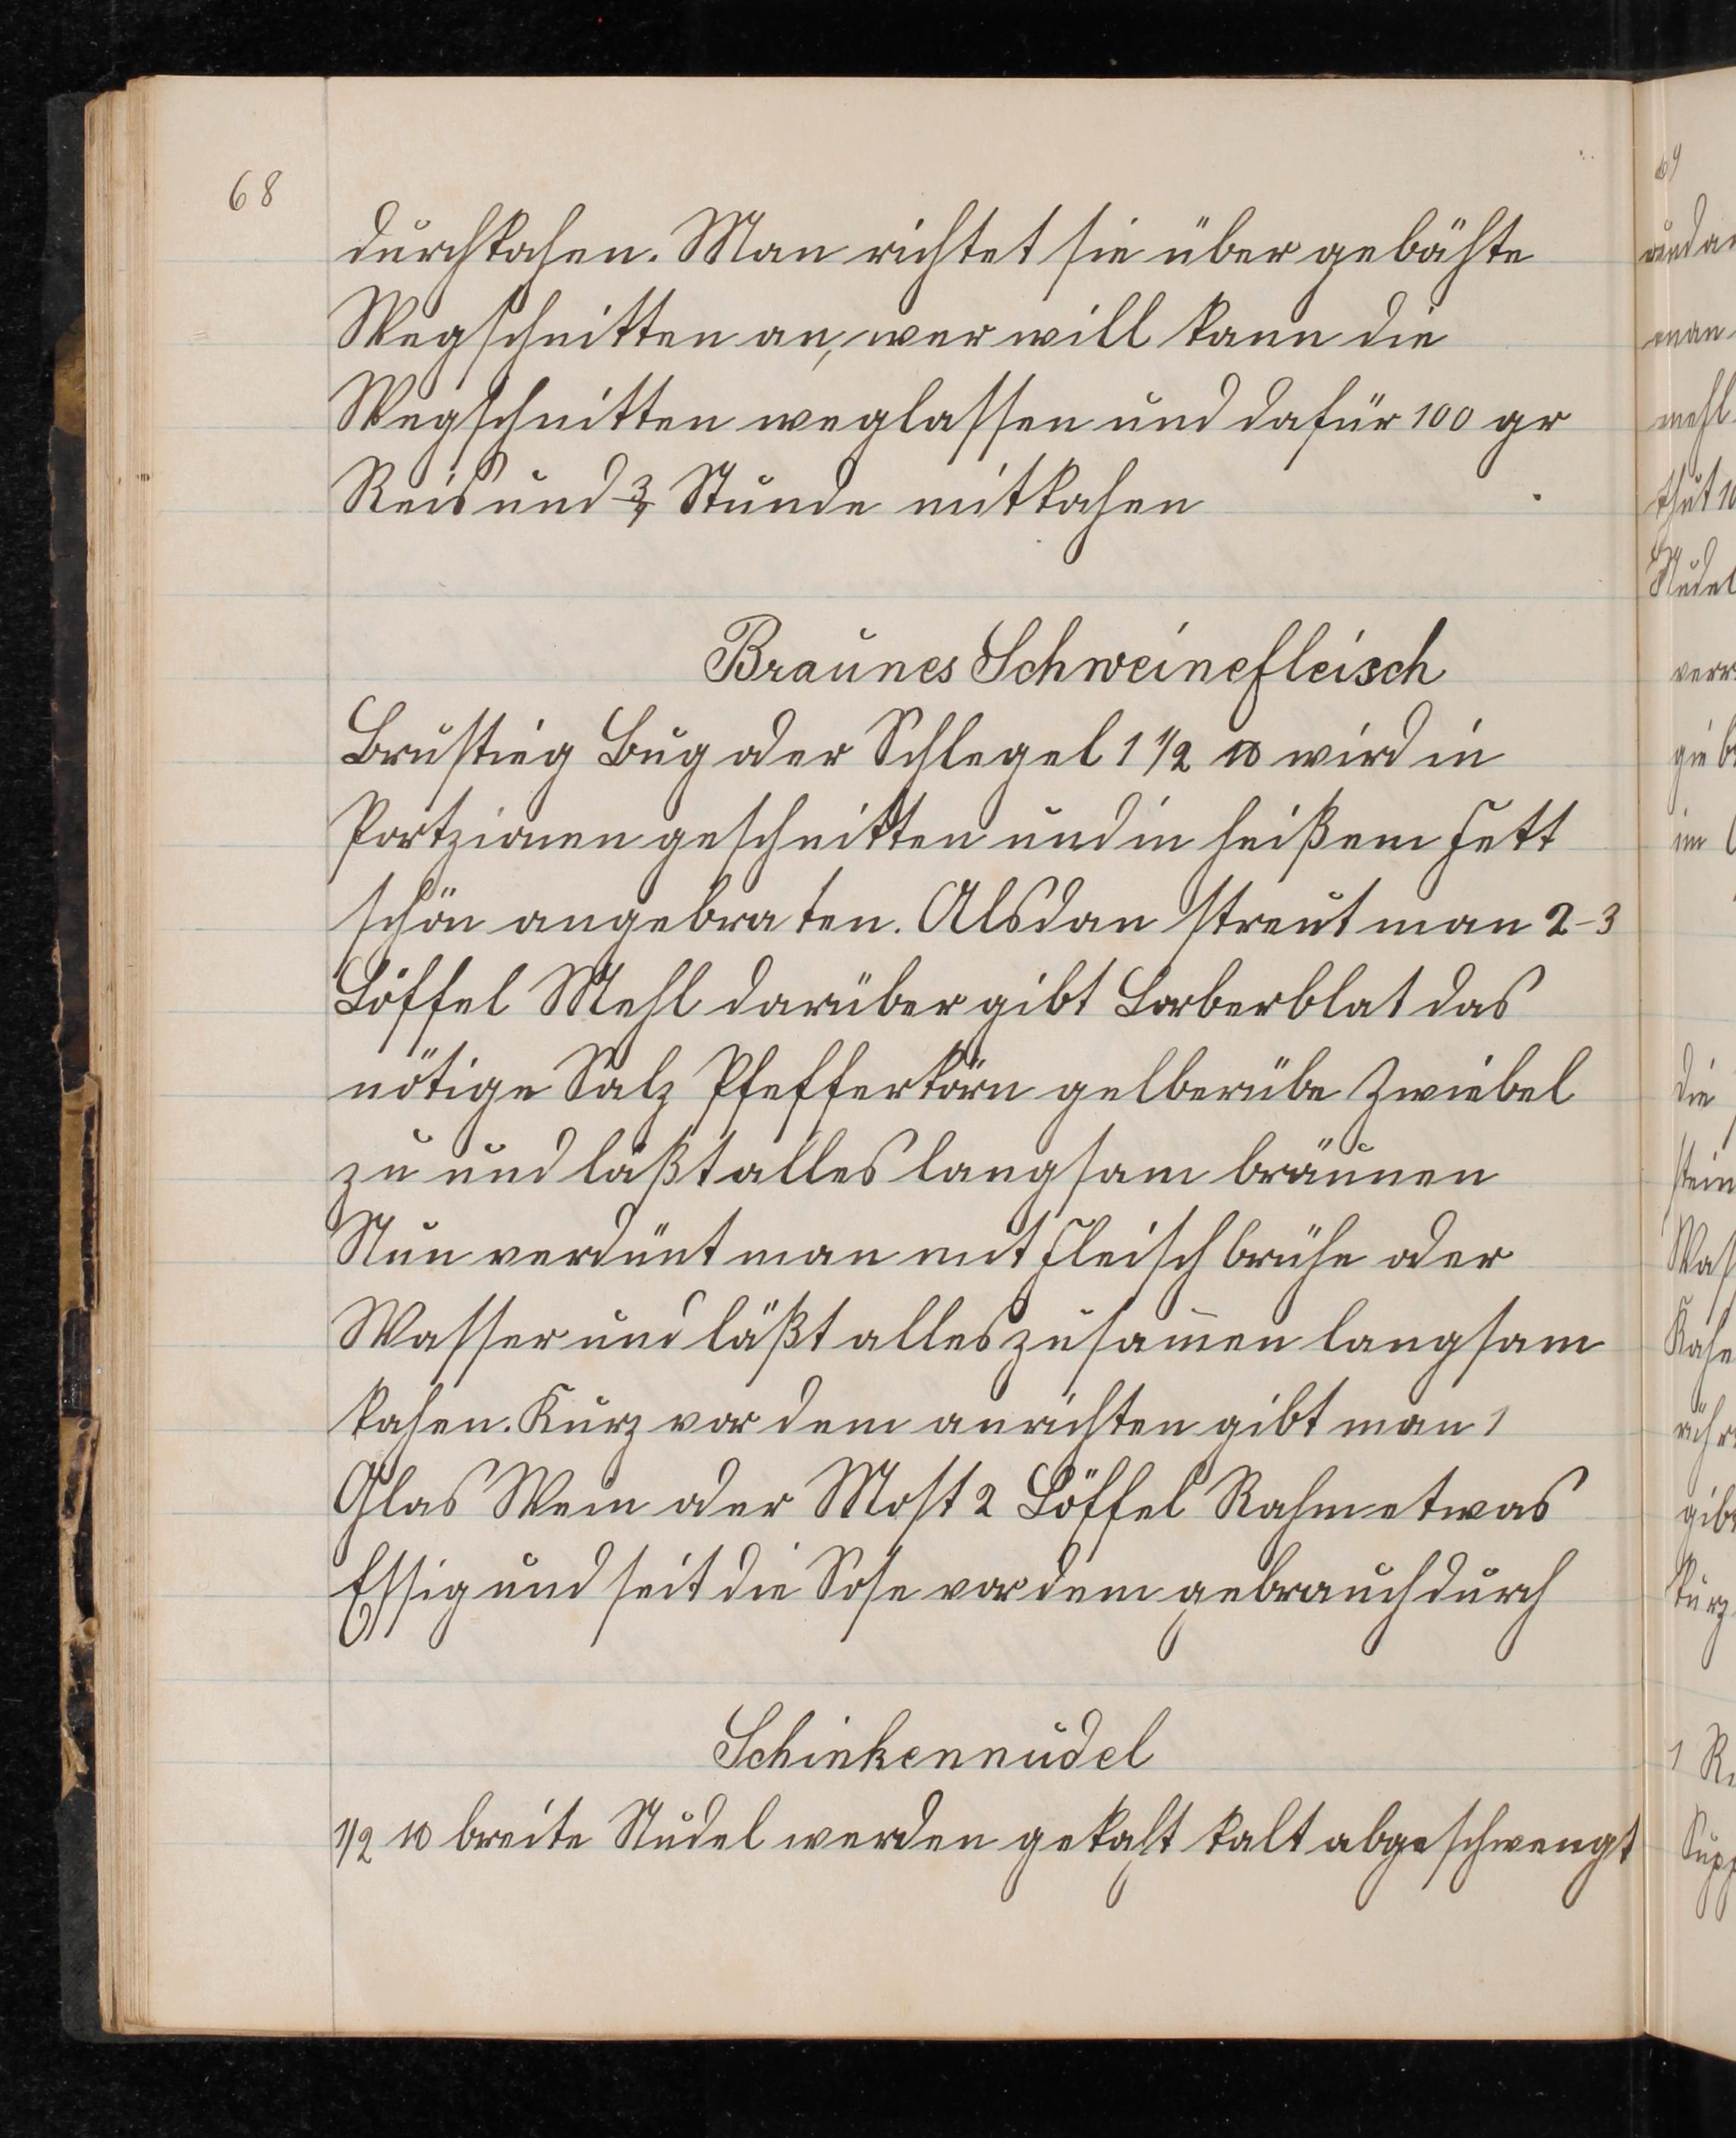 68
durchkohen. Man richtet sie über gebähte
Wegschnitten an, wer will kann die
Wegschnitten weglassen und dafür 100 gr
Reis und 3/4 Stunde mitkohen
Braunes Schweinefleisch
Brustieg Bug oder Schlegel 1 1/2 ℔ wird in
Portzionen geschnitten und in heißem Fett
schön angebraten. Alsdan streut man 2-3
Löffel Mehl darüber gibt Lorberblat das
nötige Salz Pfefferkörn gelberübe Zwiebel
zu und läßt alles langsam bräunen
Nun verdünt man mit Fleischbrühe oder
Wasser und läßt alles zusam̅en langsam
kohen. Kurz vor dem anrichten gibt man 1
Glas Wein oder Most 2 Löffel Rahm etwas
Essig und seit die Sose vor dem gebrauch durch
Schinkennudel
1/2 ℔ breite Nudel werden gekoht kalt abgeschwengt
69
und
man
mehl
thut
Nudel
im
die
gibt
kurz
1